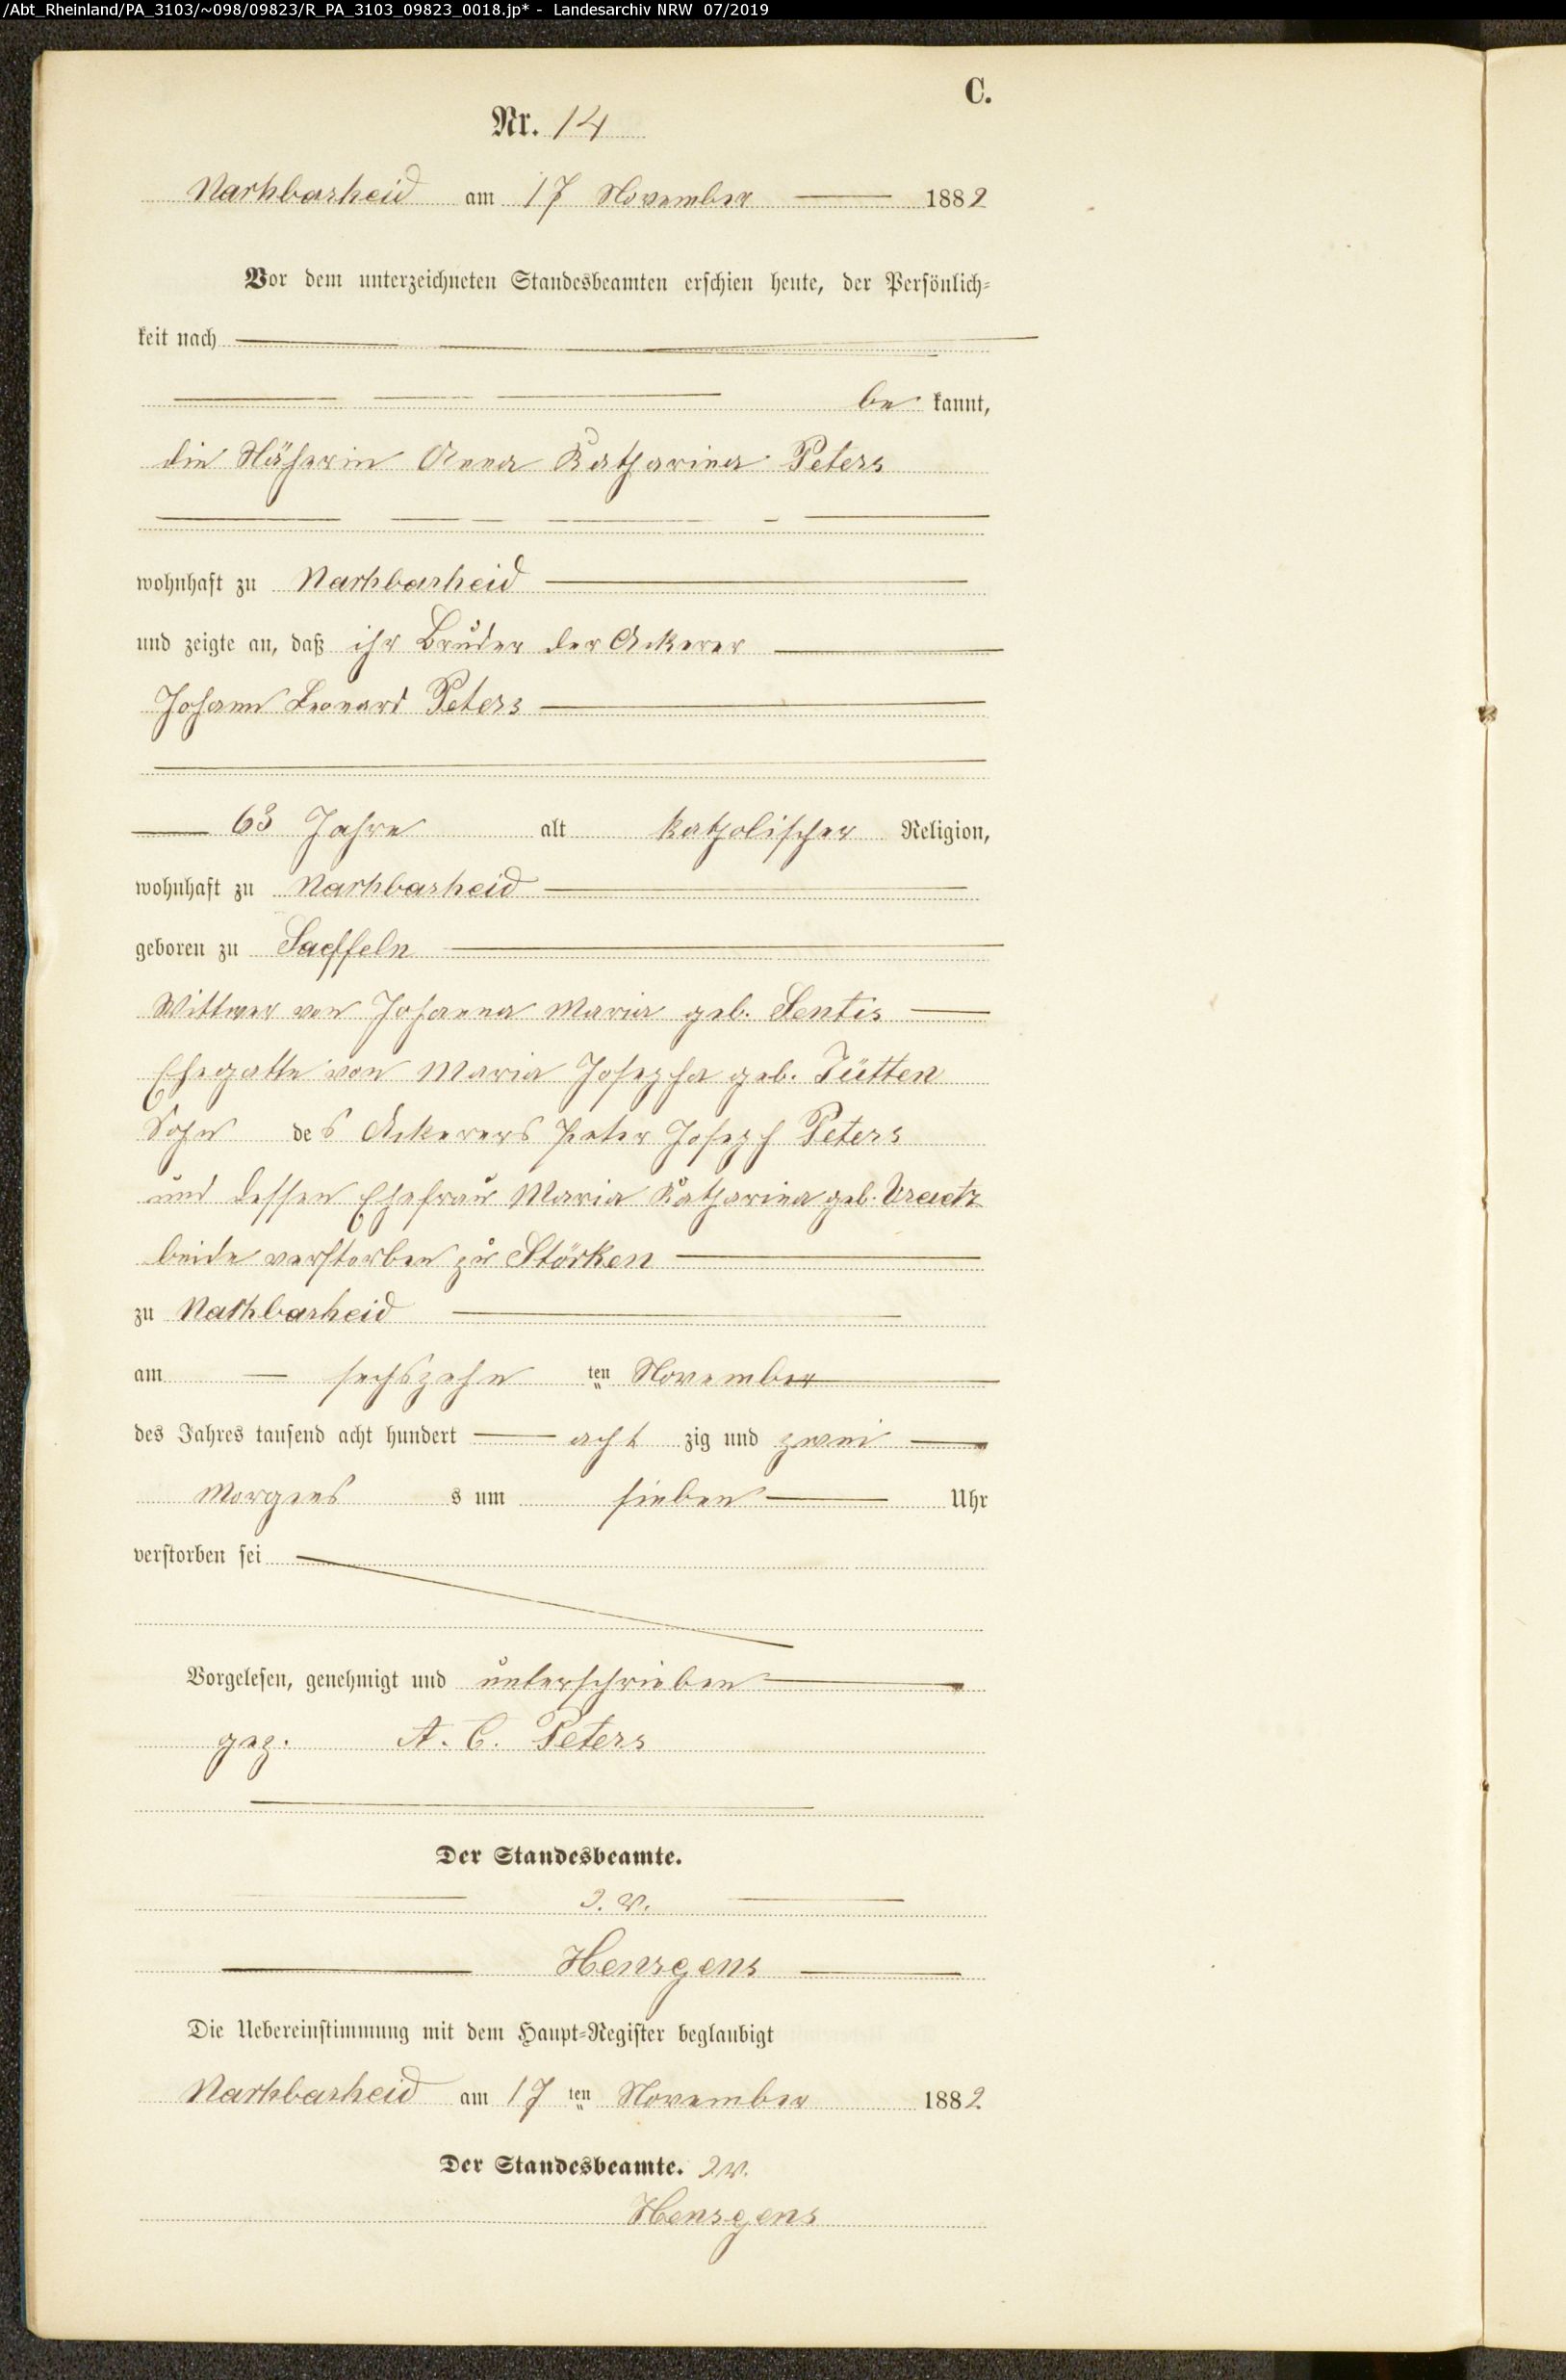 /Abt_Rheinland/PA_3103/~098/09823/R_PA_3103_09823_0018.jp* - Landesarchiv NRW 07/2019
C.
Nr. 14
Nachbarheid am 17 November 1882
Vor dem unterzeichneten Standesbeamten erschien heute, der Persönlich-
keit nach
be kannt,
die Näherin Anna Katharina Peters
wohnhaft zu Nachbarheid
und zeigte an, daß ihr Bruder der Ackerer
Johann Leonard Peters
63 Jahre alt katholischer Religion,
wohnhaft zu Nachbarheid
geboren zu Saeffeln
Wittwer von Johanna Maria geb. Sentis
Ehegatte von Maria Josepha geb. Jütten
Sohn des Ackerers Peter Joseph Peters
und dessen Ehefrau Maria Katharina geb.
beide verstorben zu Störken
zu Nachbarheid
am sechszehn ten November
des Jahres tausend acht hundert acht zig und zwei
Morgens s um sieben Uhr
verstorben sei
Vorgelesen, genehmigt und unterschrieben
gez. A. C. Peters
Der Standesbeamte.
J. V.
Hensgens
Die Uebereinstimmung mit dem Haupt-Register beglaubigt
Nachbarheid am 17 ten November 1882
Der Standesbeamte. J V.
Hensgens